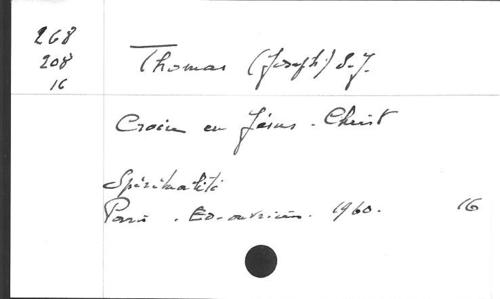 268
208
16
Thomas (Joseph) S.J.
Croire en Jésus-Christ
Spiritualité
Paris. Ed. ouvrières. 1960. 16